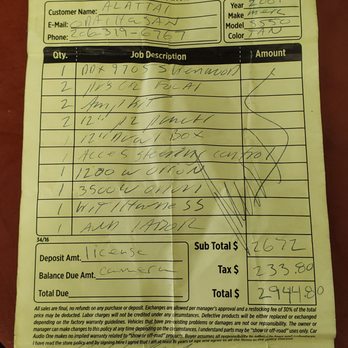 Customer Name: ALATTAI
E-Mail:
Phone: 206-319-6767
Year
Make Merc
Model S550
Color TAN
Qty. Job Description Amount
1 DDX 9705S Kenwood
2
2 Amp Kit
2 12"
1 12" Dual Box
1 Access Steering control
1 1200 w
1 3500 w
1 Wit Harness
1 And LABOR
34/16
Deposit Amt. license
Balance Due Amt. camera
Total Due
Sub Total $ 2672
Tax $ 233.80
Total $ 2944.80
All sales are final, no refunds on any purchase or deposit. Exchanges are allowed per manager's approval and a restocking fee of 50% of the total
price may be deducted. Labor charges will not be credited under any circumstances. Defective products will be either replaced or exchanged
depending on the factory warranty guidelines. Vehicles that have pre-existing problems or damages are not our reponsibility. The owner or
manager can make changes to this policy at any time depending on the circumstances. I understand parts may be "show or off-road" uses only. Car
Audio One makes no implied warranty related to "Show or off-road" parts.
I have read the store policy and by signing here I agree that I am at least 18 years of age